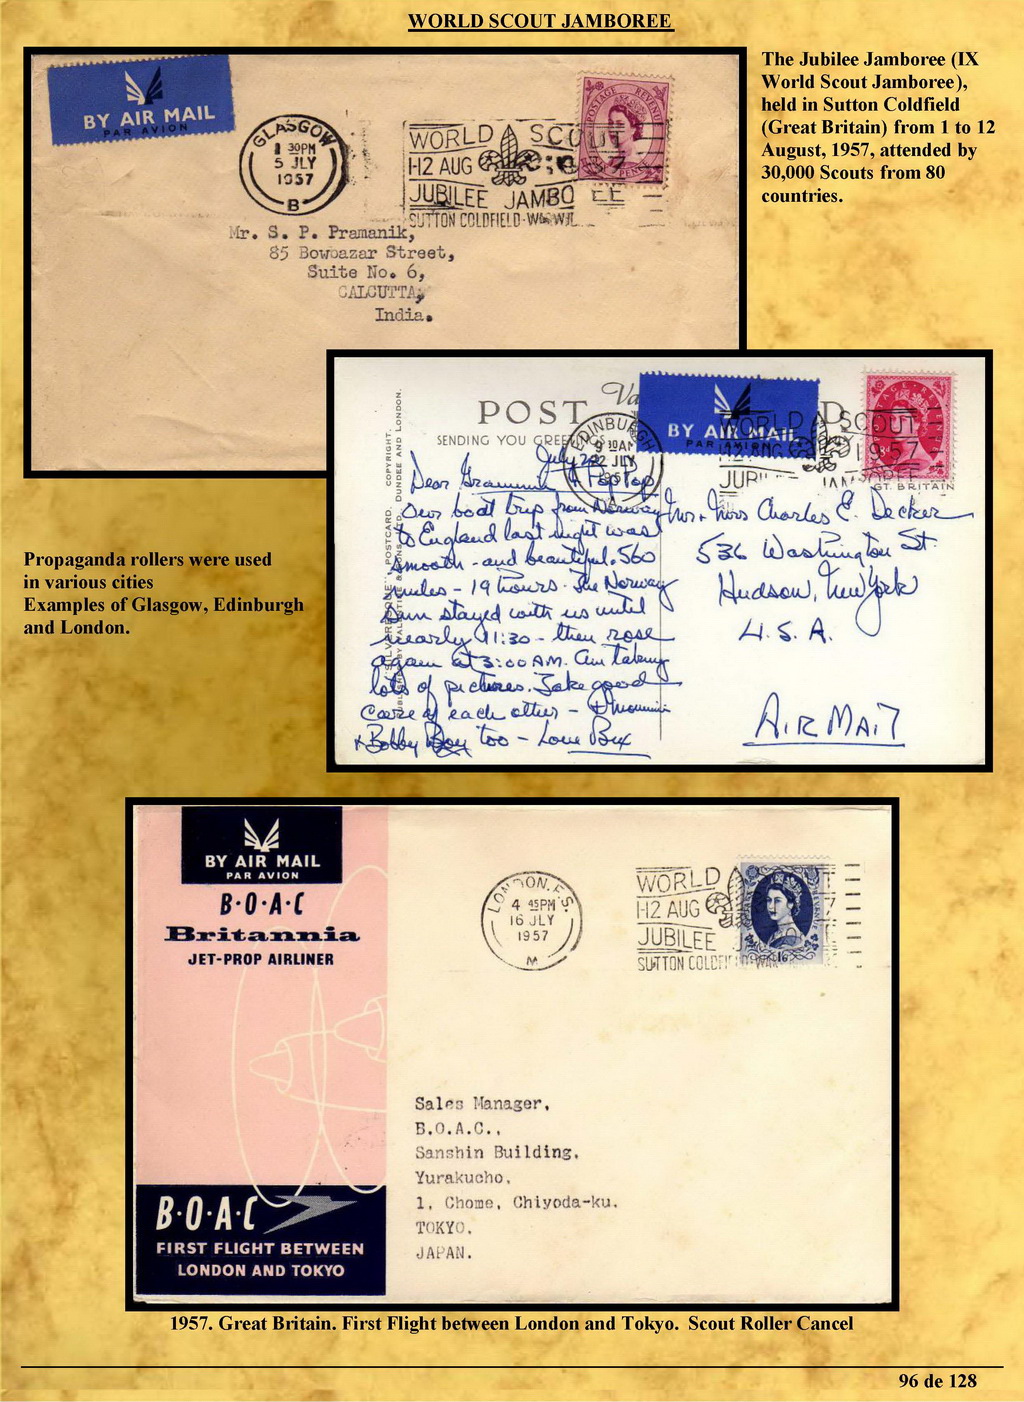 WORLD SCOUT JAMBOREE
The Jubilee Jamboree (IX
World Scout Jamboree),
held in Sutton Coldfield
(Great Britain) from 1 to 12
August, 1957, attended by
30,000 Scouts from 80
countries.
BY AIR MAIL
PAR AVION
GLASGOW
1 30PM
5 JLY
1957
B
WORLD SCOUT
1-12 AUG 1957
JUBILEE JAMBO EE
SUTTON COLDFIELD
POSTAGE REVENUE
Mr. S. P. Pramanik,
85 Bowbazar Street,
Suite No. 6,
CALCUTTA,
India.
POST
SENDING YOU GREE
BY AIR MAIL
PAR AVION
EDINBURGH
9 30AM
22 JLY
WORLD SCOUT
1-12 AUG 1957
JUBI JAMBOREE
GT. BRITAIN
POSTCARD. COPYRIGHT.
DUNDEE AND LONDON.
July 22
Dear Grammie & Pop Top
Our boat trip from Norway
to England last night was
smooth - and beautiful. 560
miles - 19 hours. The Norway
sun stayed with us until
nearly 11:30 - then rose
again at 3:00 AM. Am taking
lots of pictures. Take good
care of each other -
& Bobby Boy too - Love
Mr + Mrs Charles E. Decker
536 Washington St.
Hudson, New York
U. S. A.
AIR MAIL
Propaganda rollers were used
in various cities
Examples of Glasgow, Edinburgh
and London.
BY AIR MAIL
PAR AVION
B·O·A·C
Britannia
JET-PROP AIRLINER
B·O·A·C
FIRST FLIGHT BETWEEN
LONDON AND TOKYO
LONDON. F.S.
4 45PM
16 JLY
1957
M
WORLD
1-12 AUG 7
JUBILEE
SUTTON COLDFI
1/6
Sales Manager,
B.O.A.C.,
Sanshin Building,
Yurakucho,
1, Chome, Chiyoda-ku.
TOKYO.
JAPAN.
1957. Great Britain. First Flight between London and Tokyo. Scout Roller Cancel
96 de 128